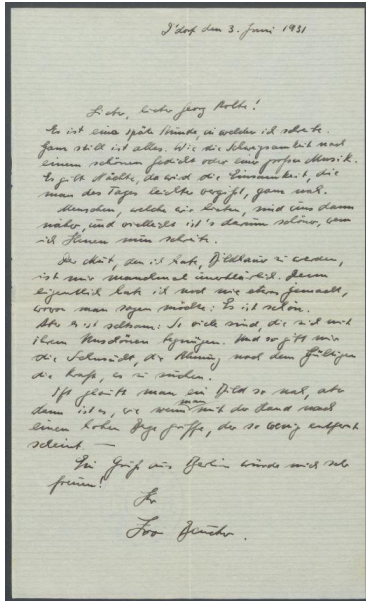 D'dorf den 3. Juni 1931
Lieber, lieber Georg Kolbe!
Es ist eine späte Stunde, in welcher ich schreibe.
Ganz still ist alles. Wie die Schweigsamkeit nach
einem schönen Gedicht oder einer großen Musik.
Es gibt Nächte, da wird die Einsamkeit, die
man des Tages leichter vergißt, ganz wach.
Menschen, welche wir lieben, sind uns dann
näher, und vielleicht ist's darum schön, wenn
ich Ihnen nun schreibe.
Der Mut, den ich habe, Bildhauer zu werden,
ist mir manchmal unerklärlich. Denn
eigentlich habe ich noch nie etwas gemacht,
wovon man sagen möchte: Es ist schön.
Aber es ist seltsam: So viele sind, die sich mit
ihrem begnügen. Und so gibt mir
die Sehnsucht, die Ahnung nach dem Gültigen
die Kraft, es zu suchen.
Oft glaubt man ein Bild so nah, aber
dann ist es, wie wenn man mit der Hand nach
einem hohen Berge griffe, der so wenig entfernt
scheint —
Ein Gruß aus Berlin würde mich sehr
freuen!
Ihr
Ivo Beucker.